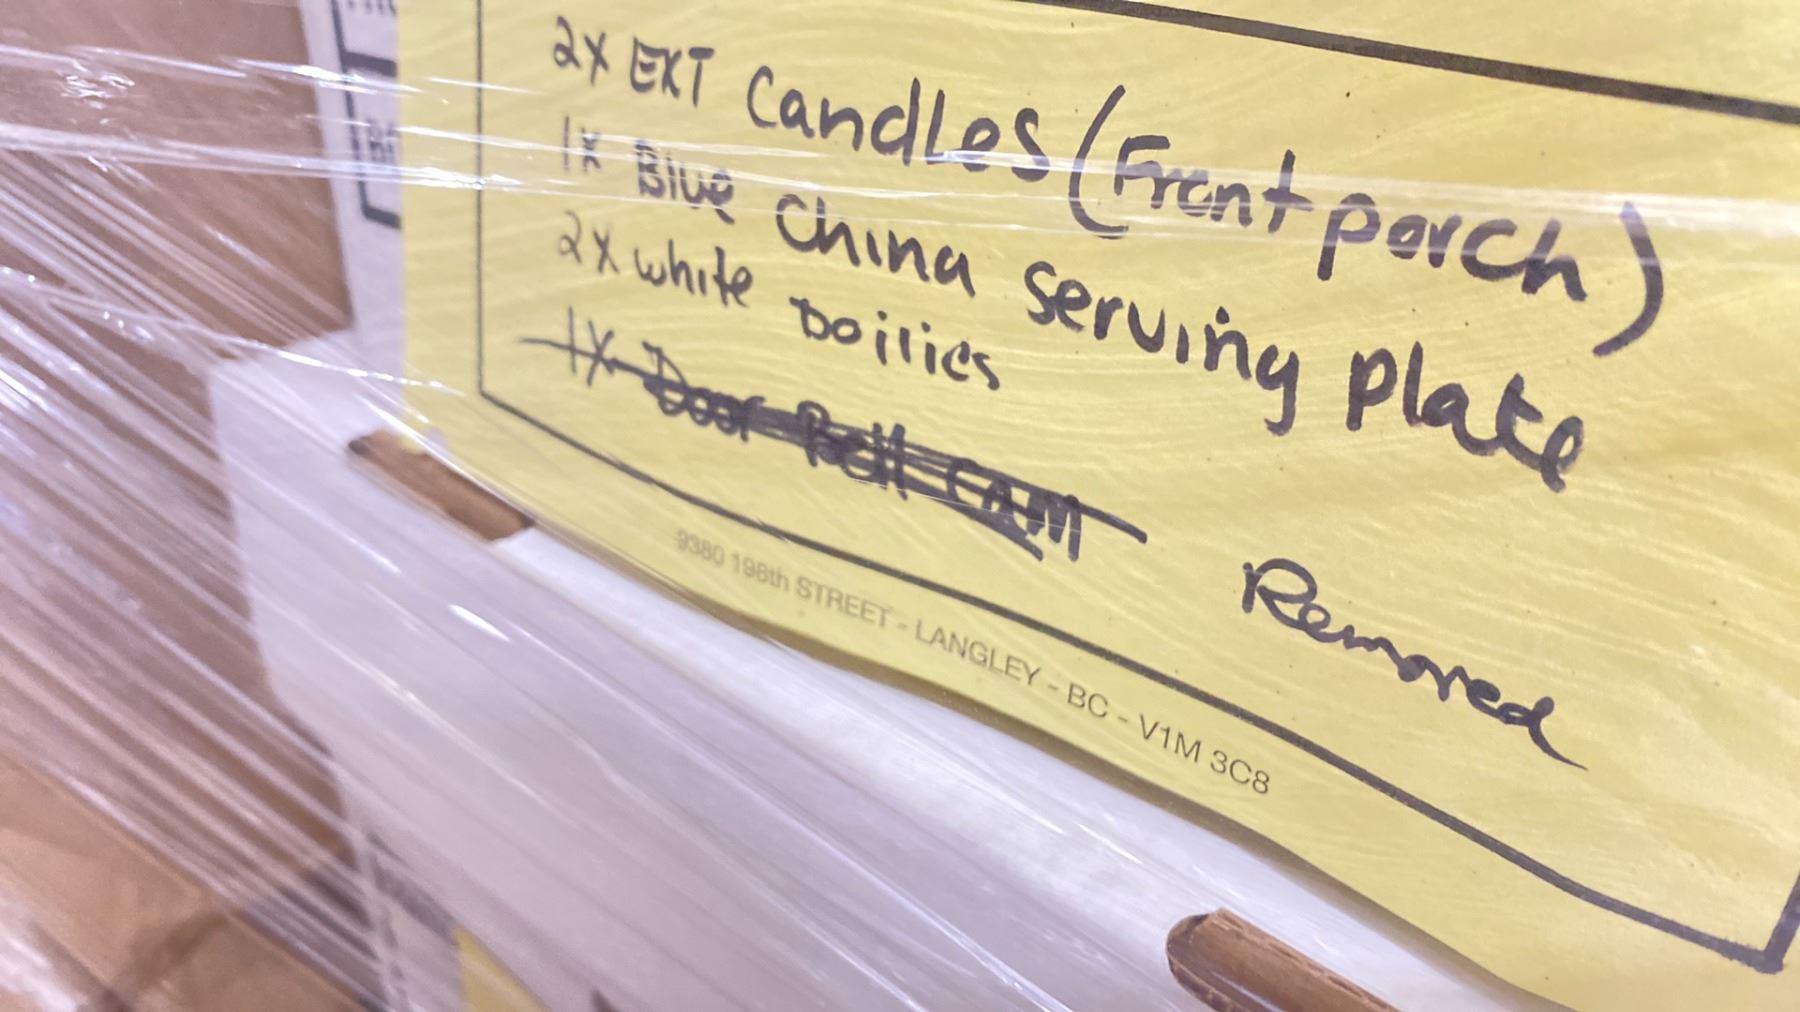 2x EXT Candles (Front porch)
1x Blue China Serving Plate
2x white Doilies
1x Door Bell CAM
Removed
9380 198th STREET - LANGLEY - BC - V1M 3C8